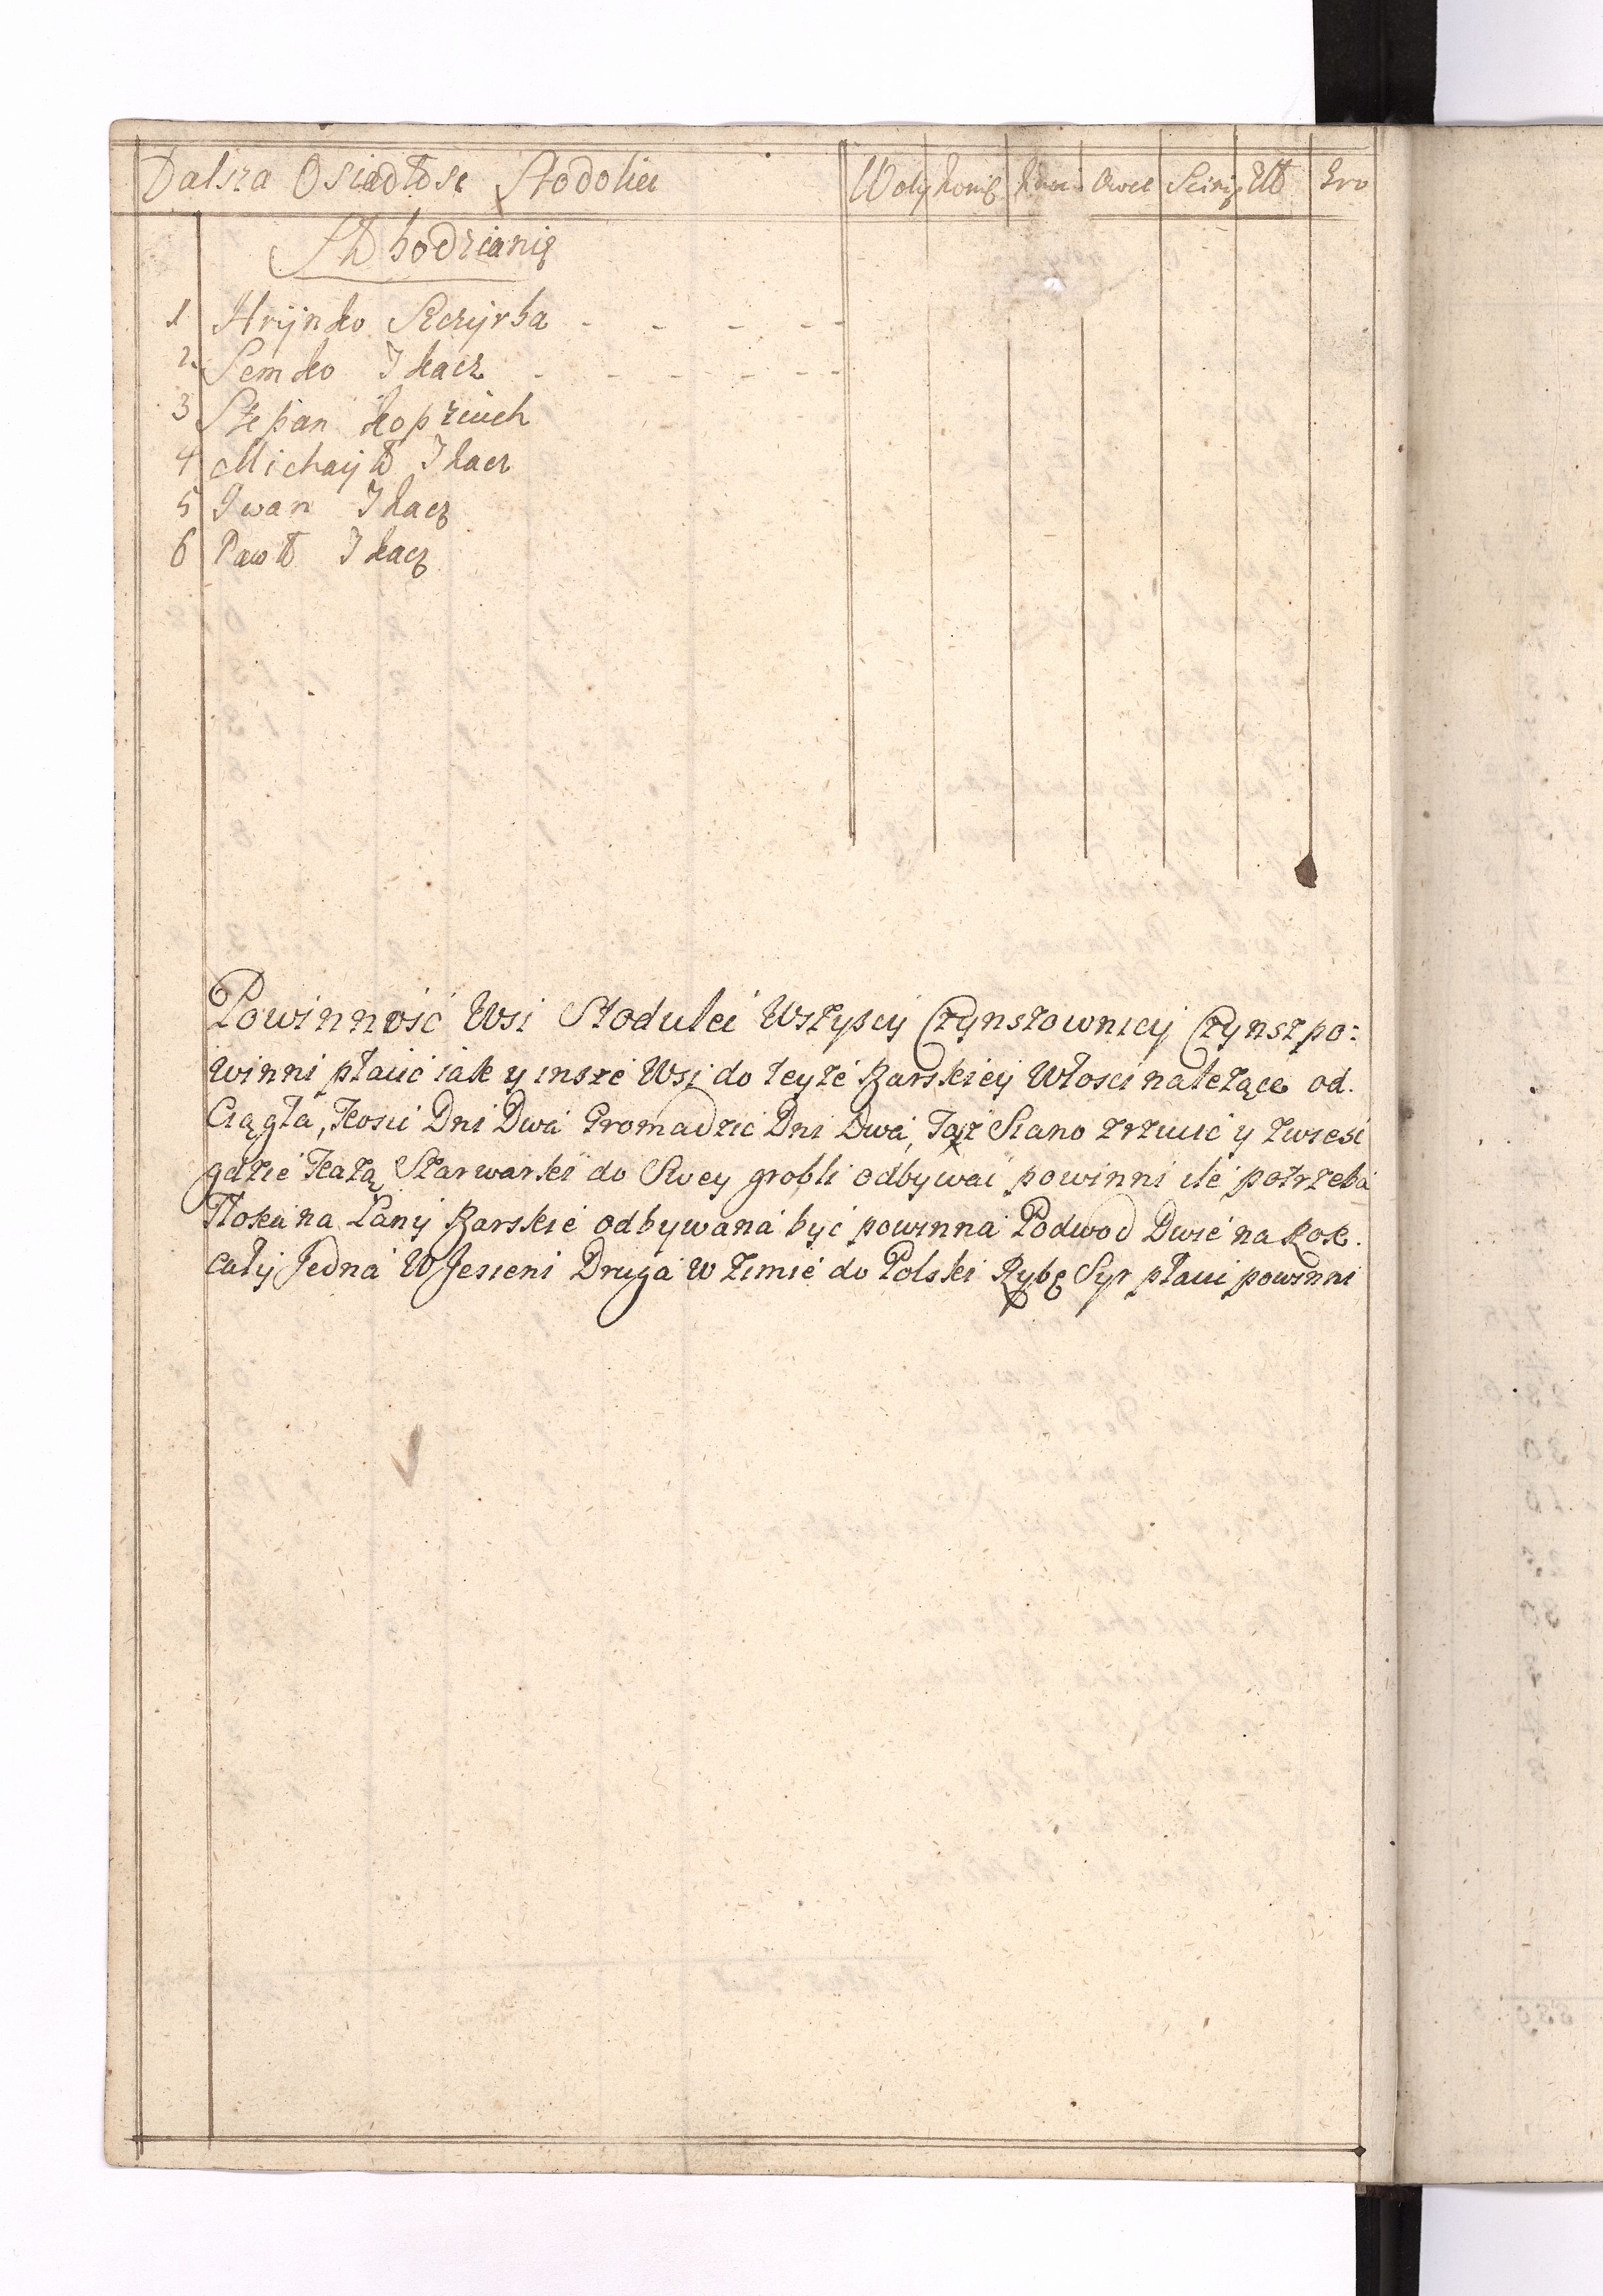 Dalsza Osiadłosc Stodolici Woły konię Krowi Owce Scinię Ułł Gro
Słłobodzianię
1 Hrynko Szczyrba
2 Semko Tkacz
3 Stepan Kopziuch
4 Michayłł Tkacz
5 Iwan Tkacz
6 Pawłł Tkacz
Powinność Wsi Stodulei Wszyscy Czynszownicy Czynsz po:
winni płacić iak y insze Wsi do teyże Barskiey Włosci należące od.
Ciągła, Kosić Dni Dwa Gromadzic Dni Dwa, Toż Siano zrzucić y zwiesć
gdzie Każą Szarwarki do Swey grobli odbywać powinni ile potrzeba
Tłoka na Łany Barskie odbywana być powinna Podwod Dwie na Rok.
Cały Jedna W Jesieni Druga W Zimie do Polski Rybę Syr płaci powinni